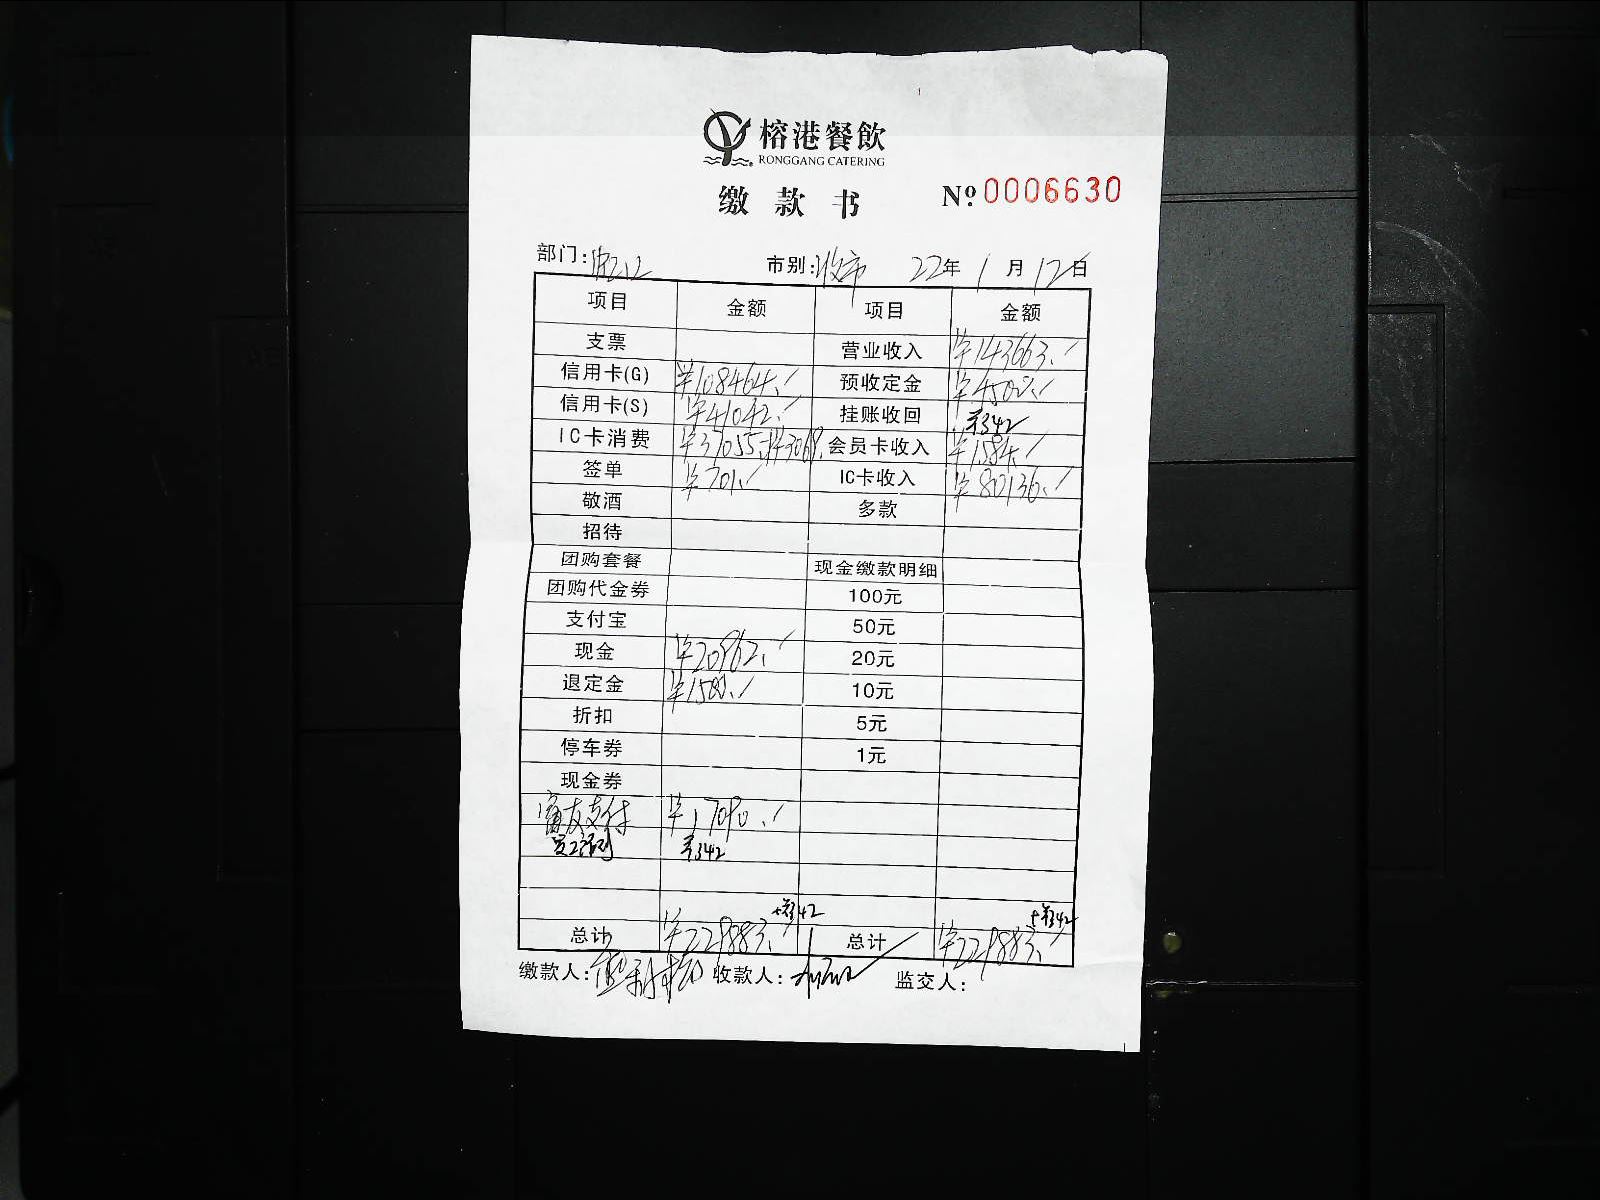 榕港餐飲
RONGGANG CATERING
缴款书 Nº 0006630
部门: 市别:收市 22年1月12日
项目 金额 项目 金额
支票 营业收入 ¥143663.
信用卡(G) ¥108464. 预收定金 ¥4500.
信用卡(S) ¥41042. 挂账收回 ¥342
IC卡消费 ¥37055. ¥3069. 会员卡收入 ¥1584.
签单 ¥701. IC卡收入 ¥80136.
敬酒 多款
招待
团购套餐 现金缴款明细
团购代金券 100元
支付宝 50元
现金 ¥20962. 20元
退定金 ¥1500. 10元
折扣 5元
停车券 1元
现金券
富友支付 ¥17090.
¥342
+¥342 +¥342
总计 ¥229883. 总计 ¥229883.
缴款人: 收款人: 监交人: